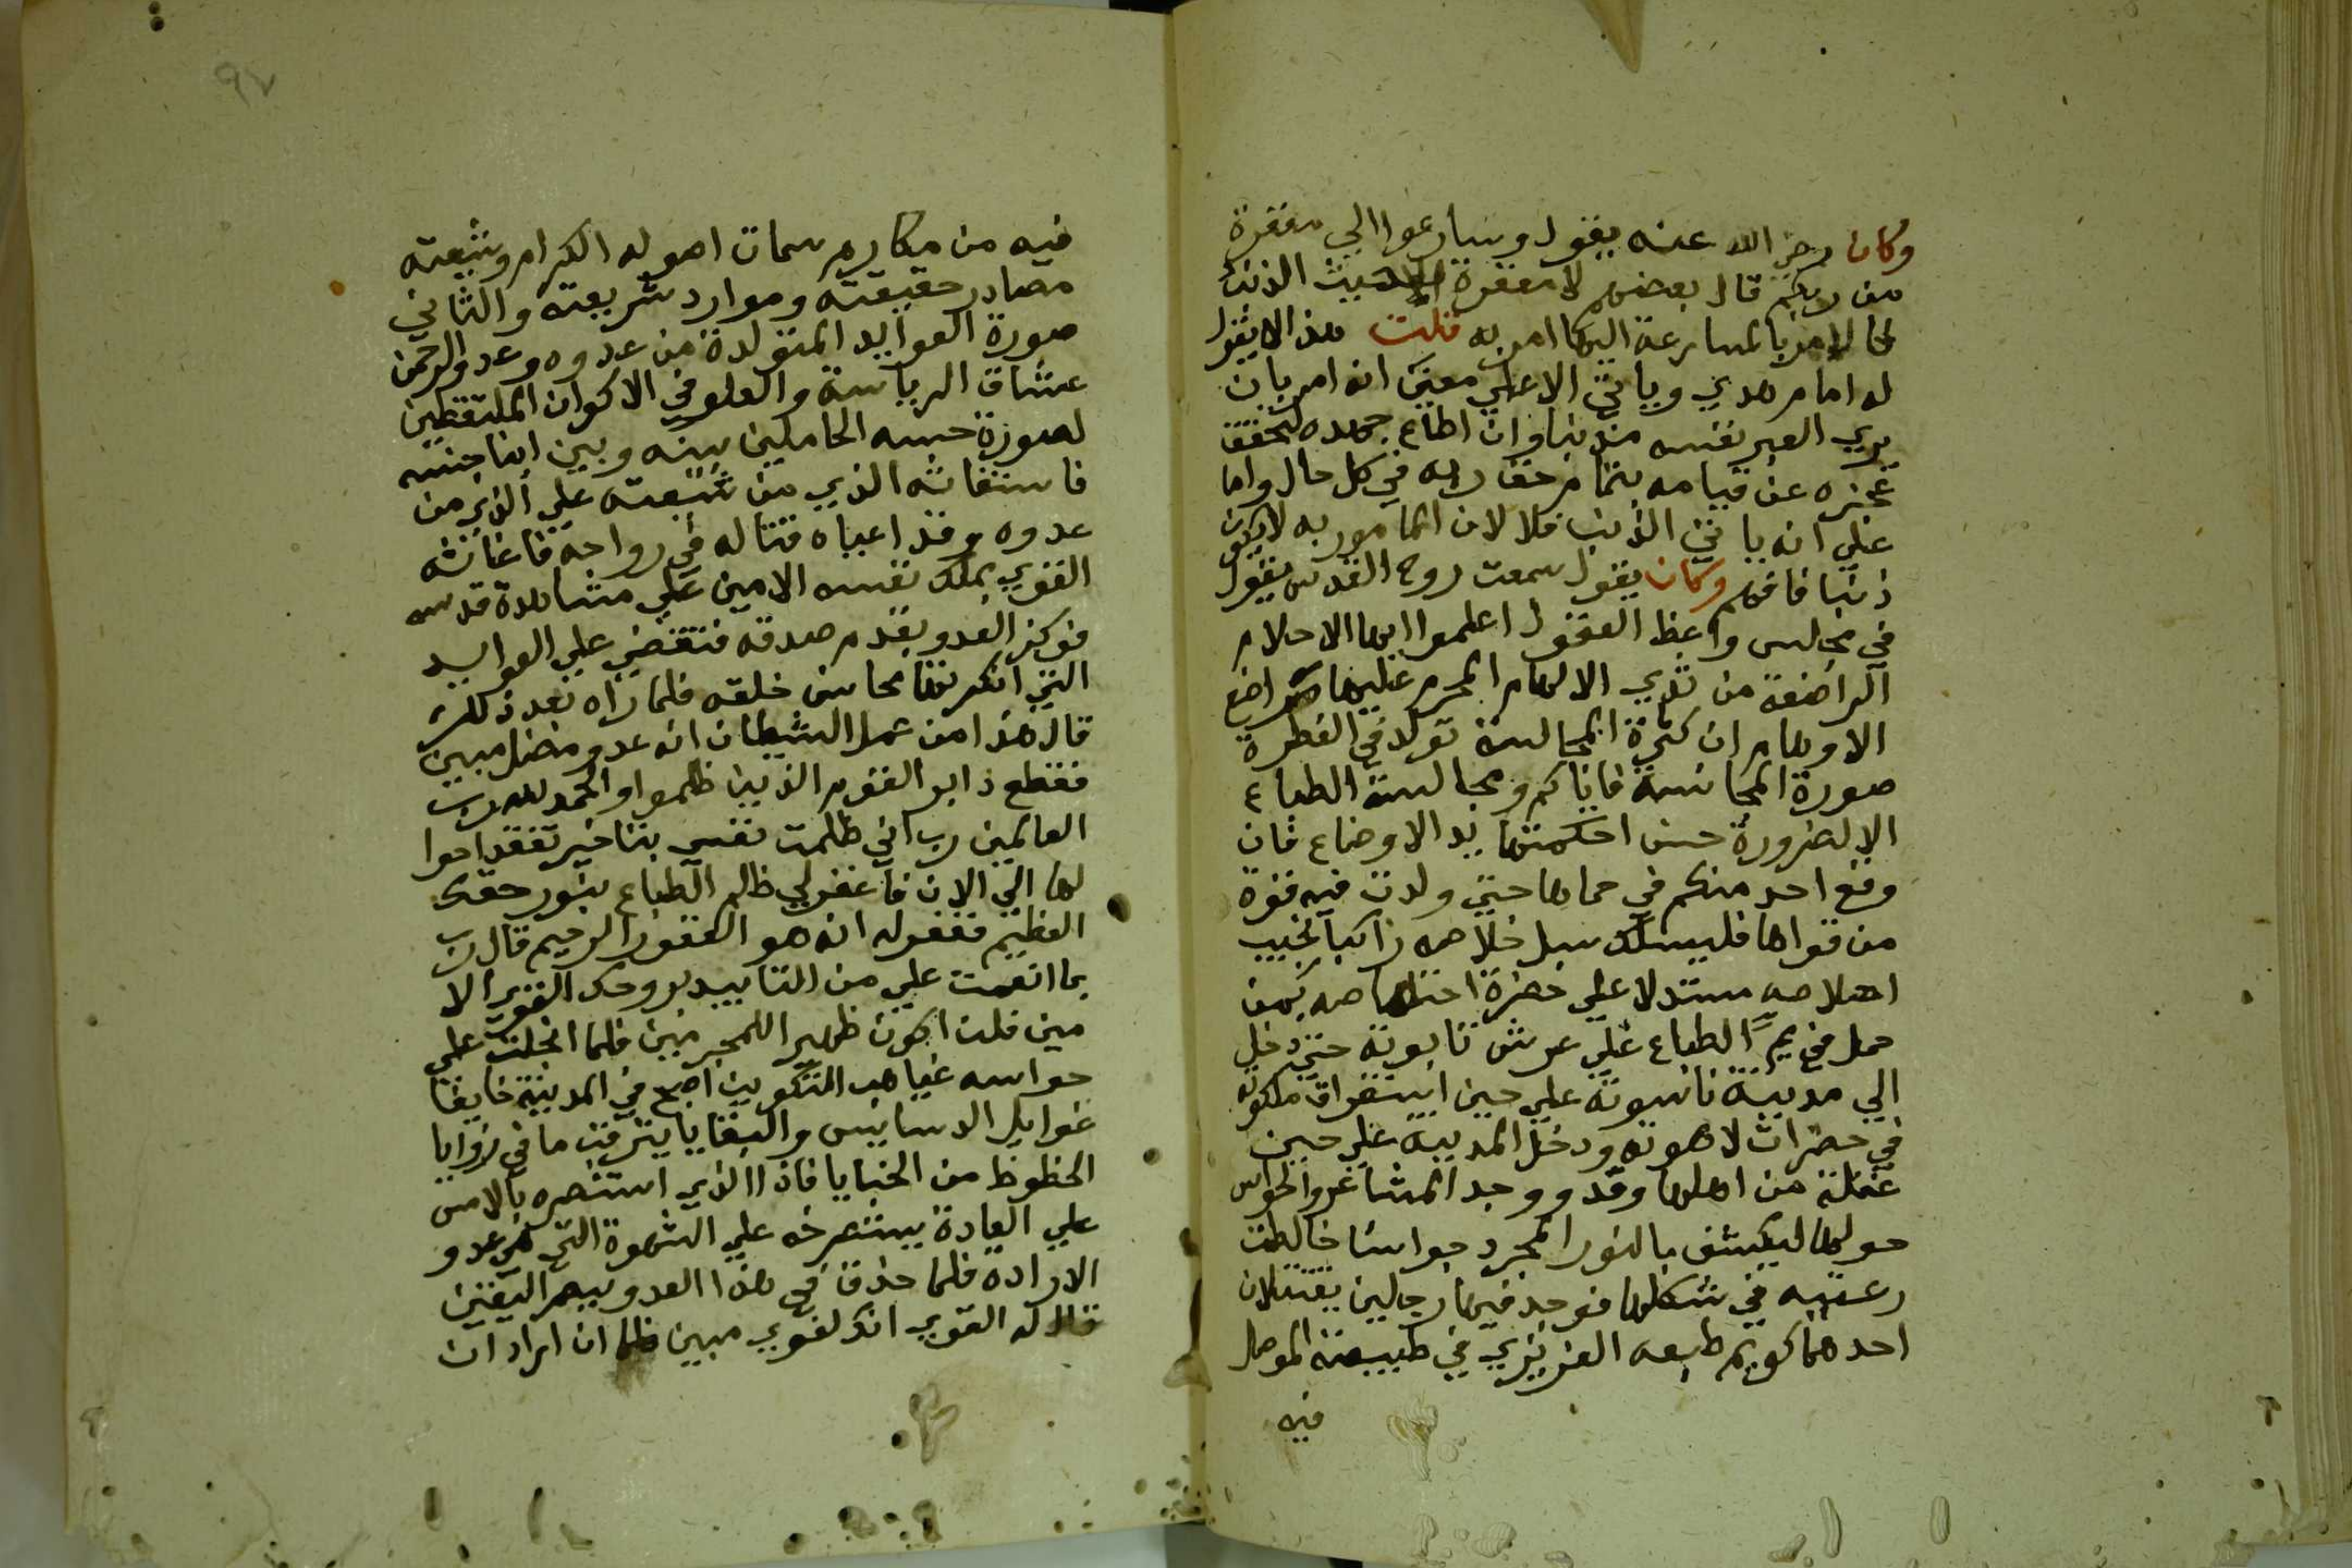 وكان رضي الله عنه يقول وسارعوا الي مغفرة
من ربكم قال بعضهم لا مغفرة الا حيث الذنب
فالامر بالمسارعة اليها امر به قلت هذا لا يقول
له امام هدي وياتي الا علي معني انه امر بان
يري العبد نفسه مذنبا وان اطاع جهده لتحقق
عجزه عن قيامه بتمام حق ربه في كل حال واما
علي انه ياتي الذنب فلا لان المامور به لا يكون
ذنبا فافهم وكان يقول سمعت روح القدس يقول
في مجلس واعظ العقول اعلموا ايها الاحلام
الراضعة من ثدي الالهام المحرم عليها مراضع
الاوهام ان كثرة المجالسة تولد في الفطرة
صورة المجانسة فاياكم ومجالسة الطباع
الا لضرورة حسن احكمتها يد الاوضاع فان
وقع احد منكم في حماها حتي ولدت فيه قوة
من قواها فليسلك سبل خلاصه راكبا نجيب
اخلاصه مستدلا علي حضرة اختصاصه كمن
حمل في يم الطباع علي عرش تابوته حتي دخل
الي مدينة ناسوته علي حين استغراق ملكوته
في حضرات لاهوته ودخل المدينة علي حين
غفلة من اهلها وقد ووجد المشاعر والحواس
حولها ليكشف بالنور المجرد جواسا خالطت
رعيته في شكلها فوجد فيها رجلين يقتتلان
احدهما كويم طبعه الغريزي في طبيعته الموصل
فيه
٩٧
فيه من مكارم سمات اصوله الكرام وشيعته
مصادر حقيقته وموارد شريعته والثاني
صورة العوايد المتولدة من عدوه وعدو الرحمن
عشاق الرياسة والعلو في الاكوان الملتقطين
لصورة حسه الحاملين بينه وبين ابنا جنسه
فاستغاثه الذي من شيعته علي الذي من
عدوه وقد اعياه قتاله في رواحه فاغاثه
القوي بملك نفسه الامين علي مشاهدة قدسه
فوكز العدو بقدم صدقه فتقضي علي العوايد
التي انكرتها محاسن خلقه فلما راه بعد ذلك
قال هذا من عمل الشيطان انه عدو مضل مبين
فقطع دابر القوم الذين ظلموا والحمد لله رب
العالمين رب اني ظلمت نفسي بتاخير تفقد احوا
لها الي الان فاغفر لي ظلم الطباع بنور حقك
العظيم فغفر له انه هو الغفور الرحيم قال رب
بما انعمت علي من التاييد بروحك القوي الا
مين فلن اكون ظهيرا للمجرمين فلما انجلت علي
حواسه غياهب التكوين اصبح في المدينة خايفا
غوايل الدسايس والبقايا يترقب ما في زوايا
الحظوظ من الخبايا فاذا الذي استنصره بالامس
علي العادة يستصرخه علي الشهوة التي هي عدو
الارادة فلما حذق في هذا العدو ببصر اليقين
قال له القوي انك لغوي مبين فلما ان اراد ان